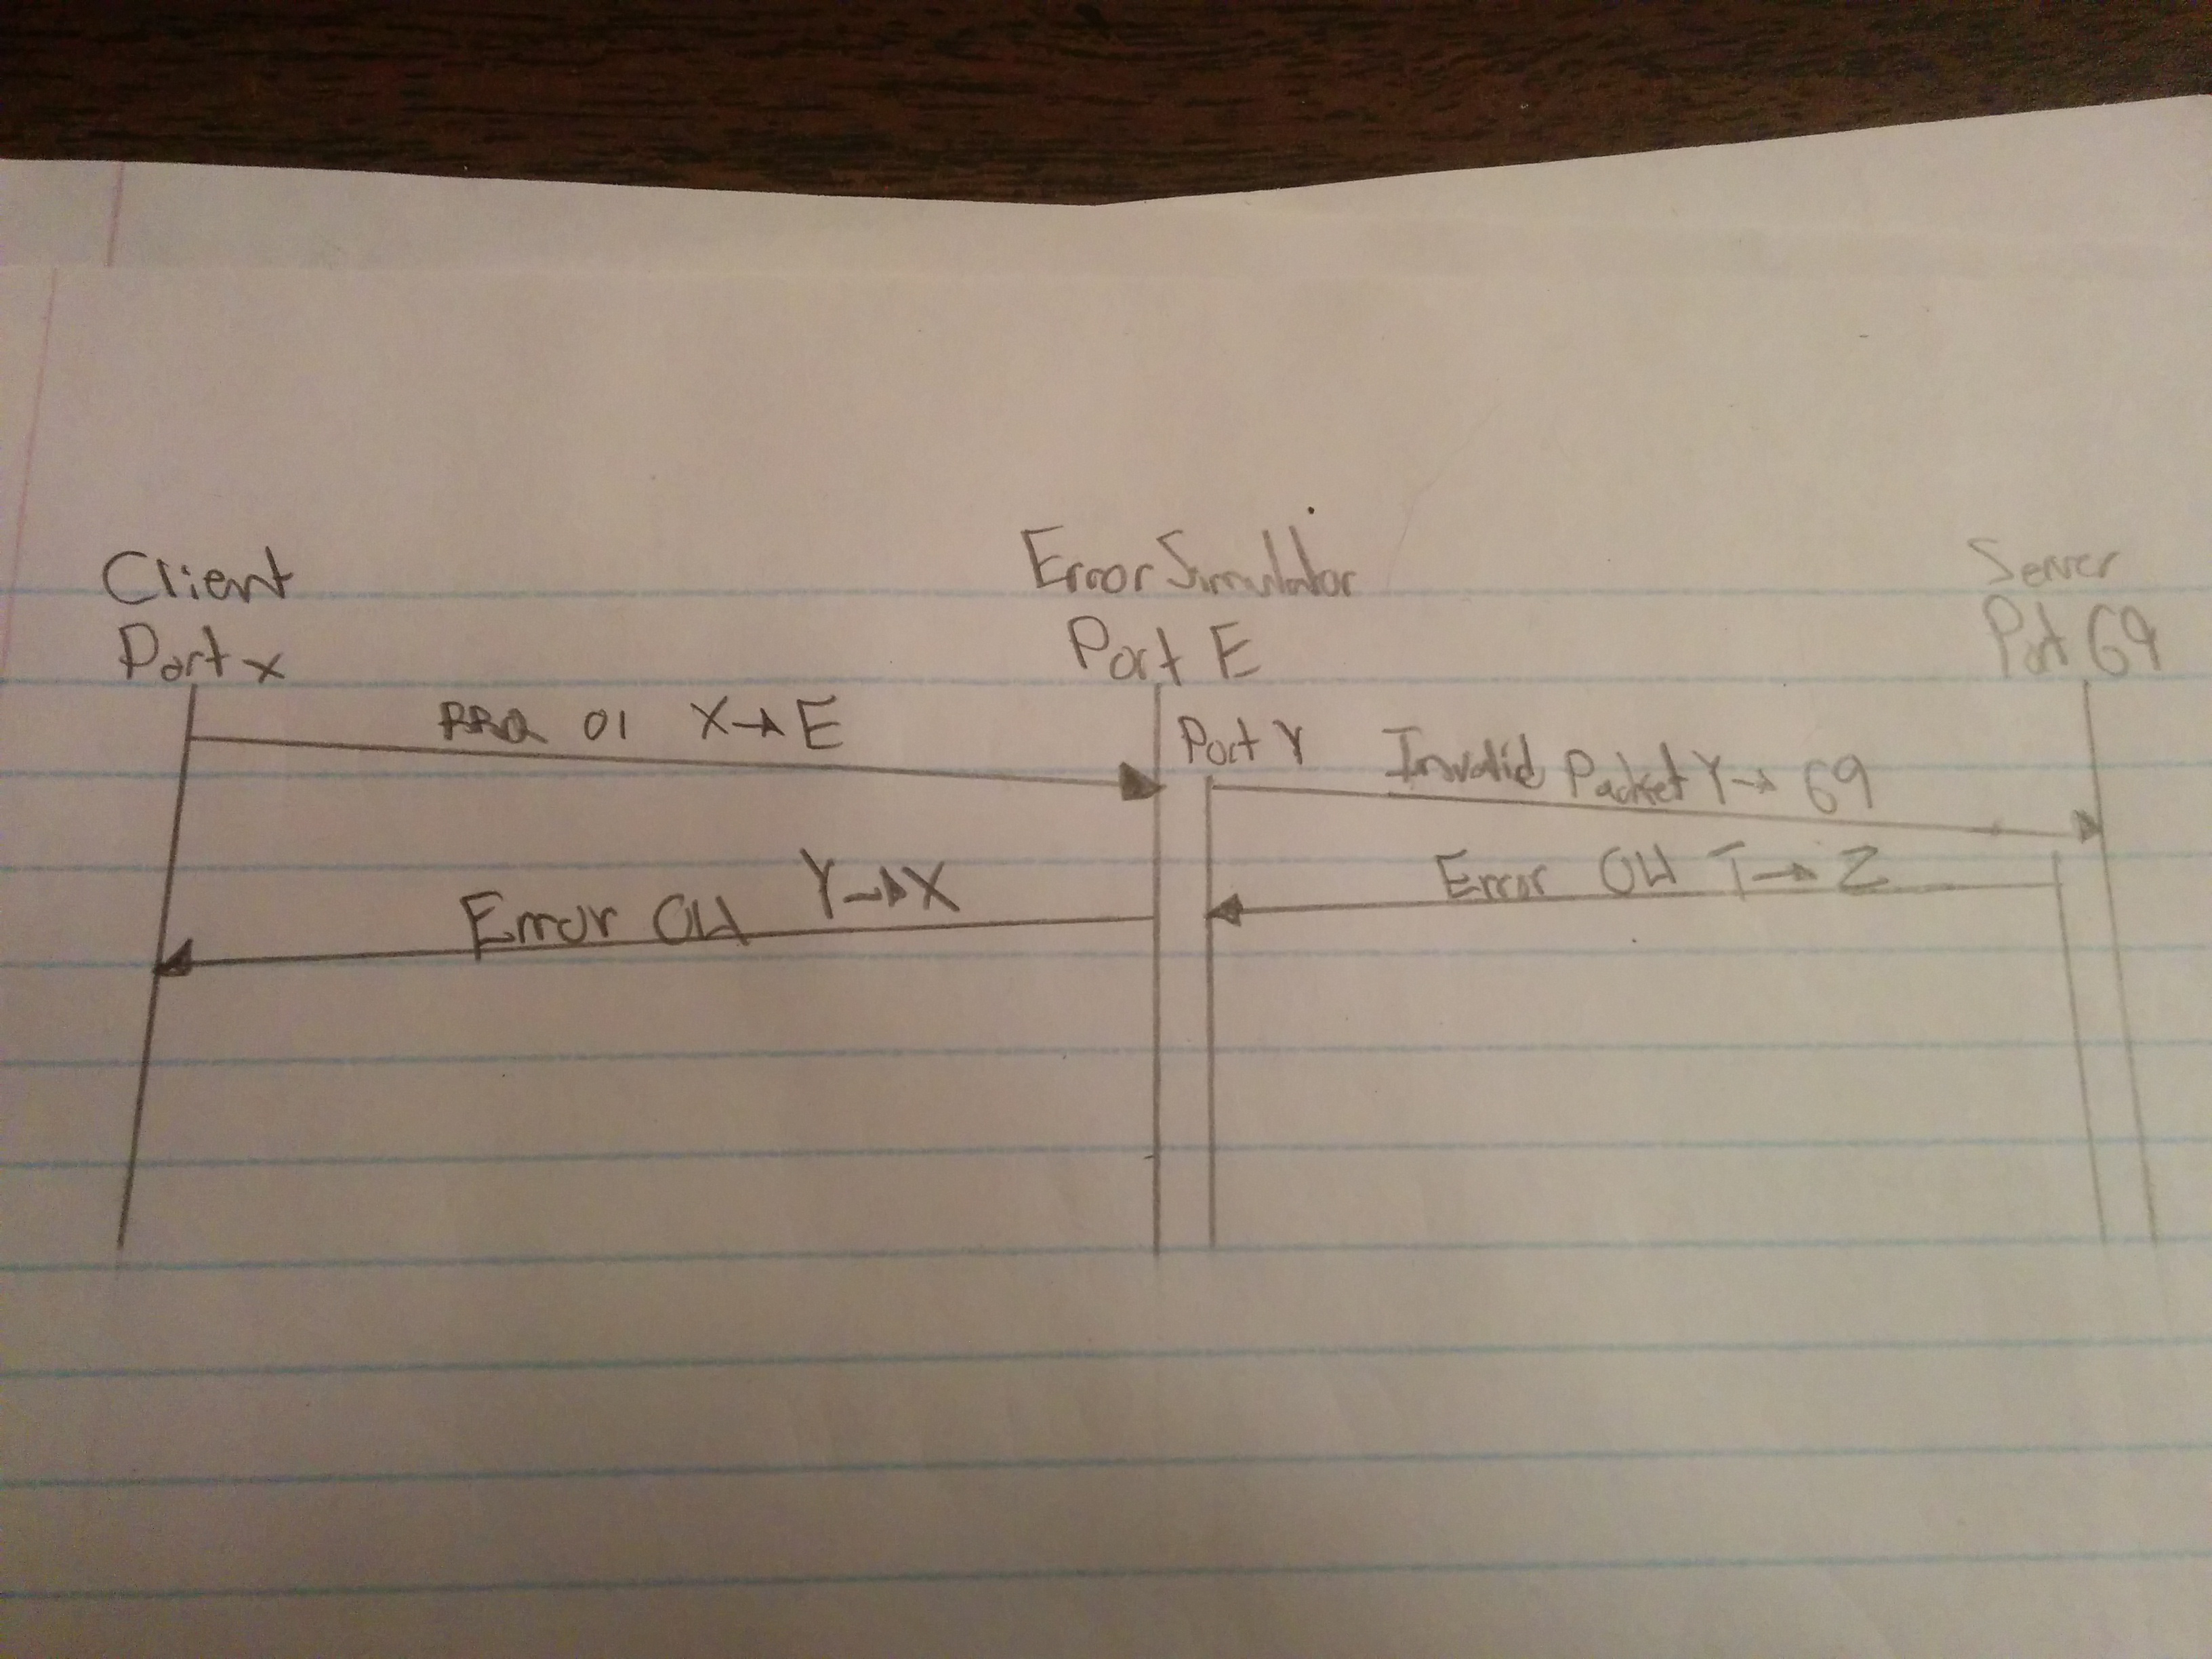 Client
Port x
Error Simulator
Port E
Server
Port 69
RRQ 01 X→E
Port Y
Invalid Packet Y→ 69
Error 04 T→ Z
Error 04 Y→X